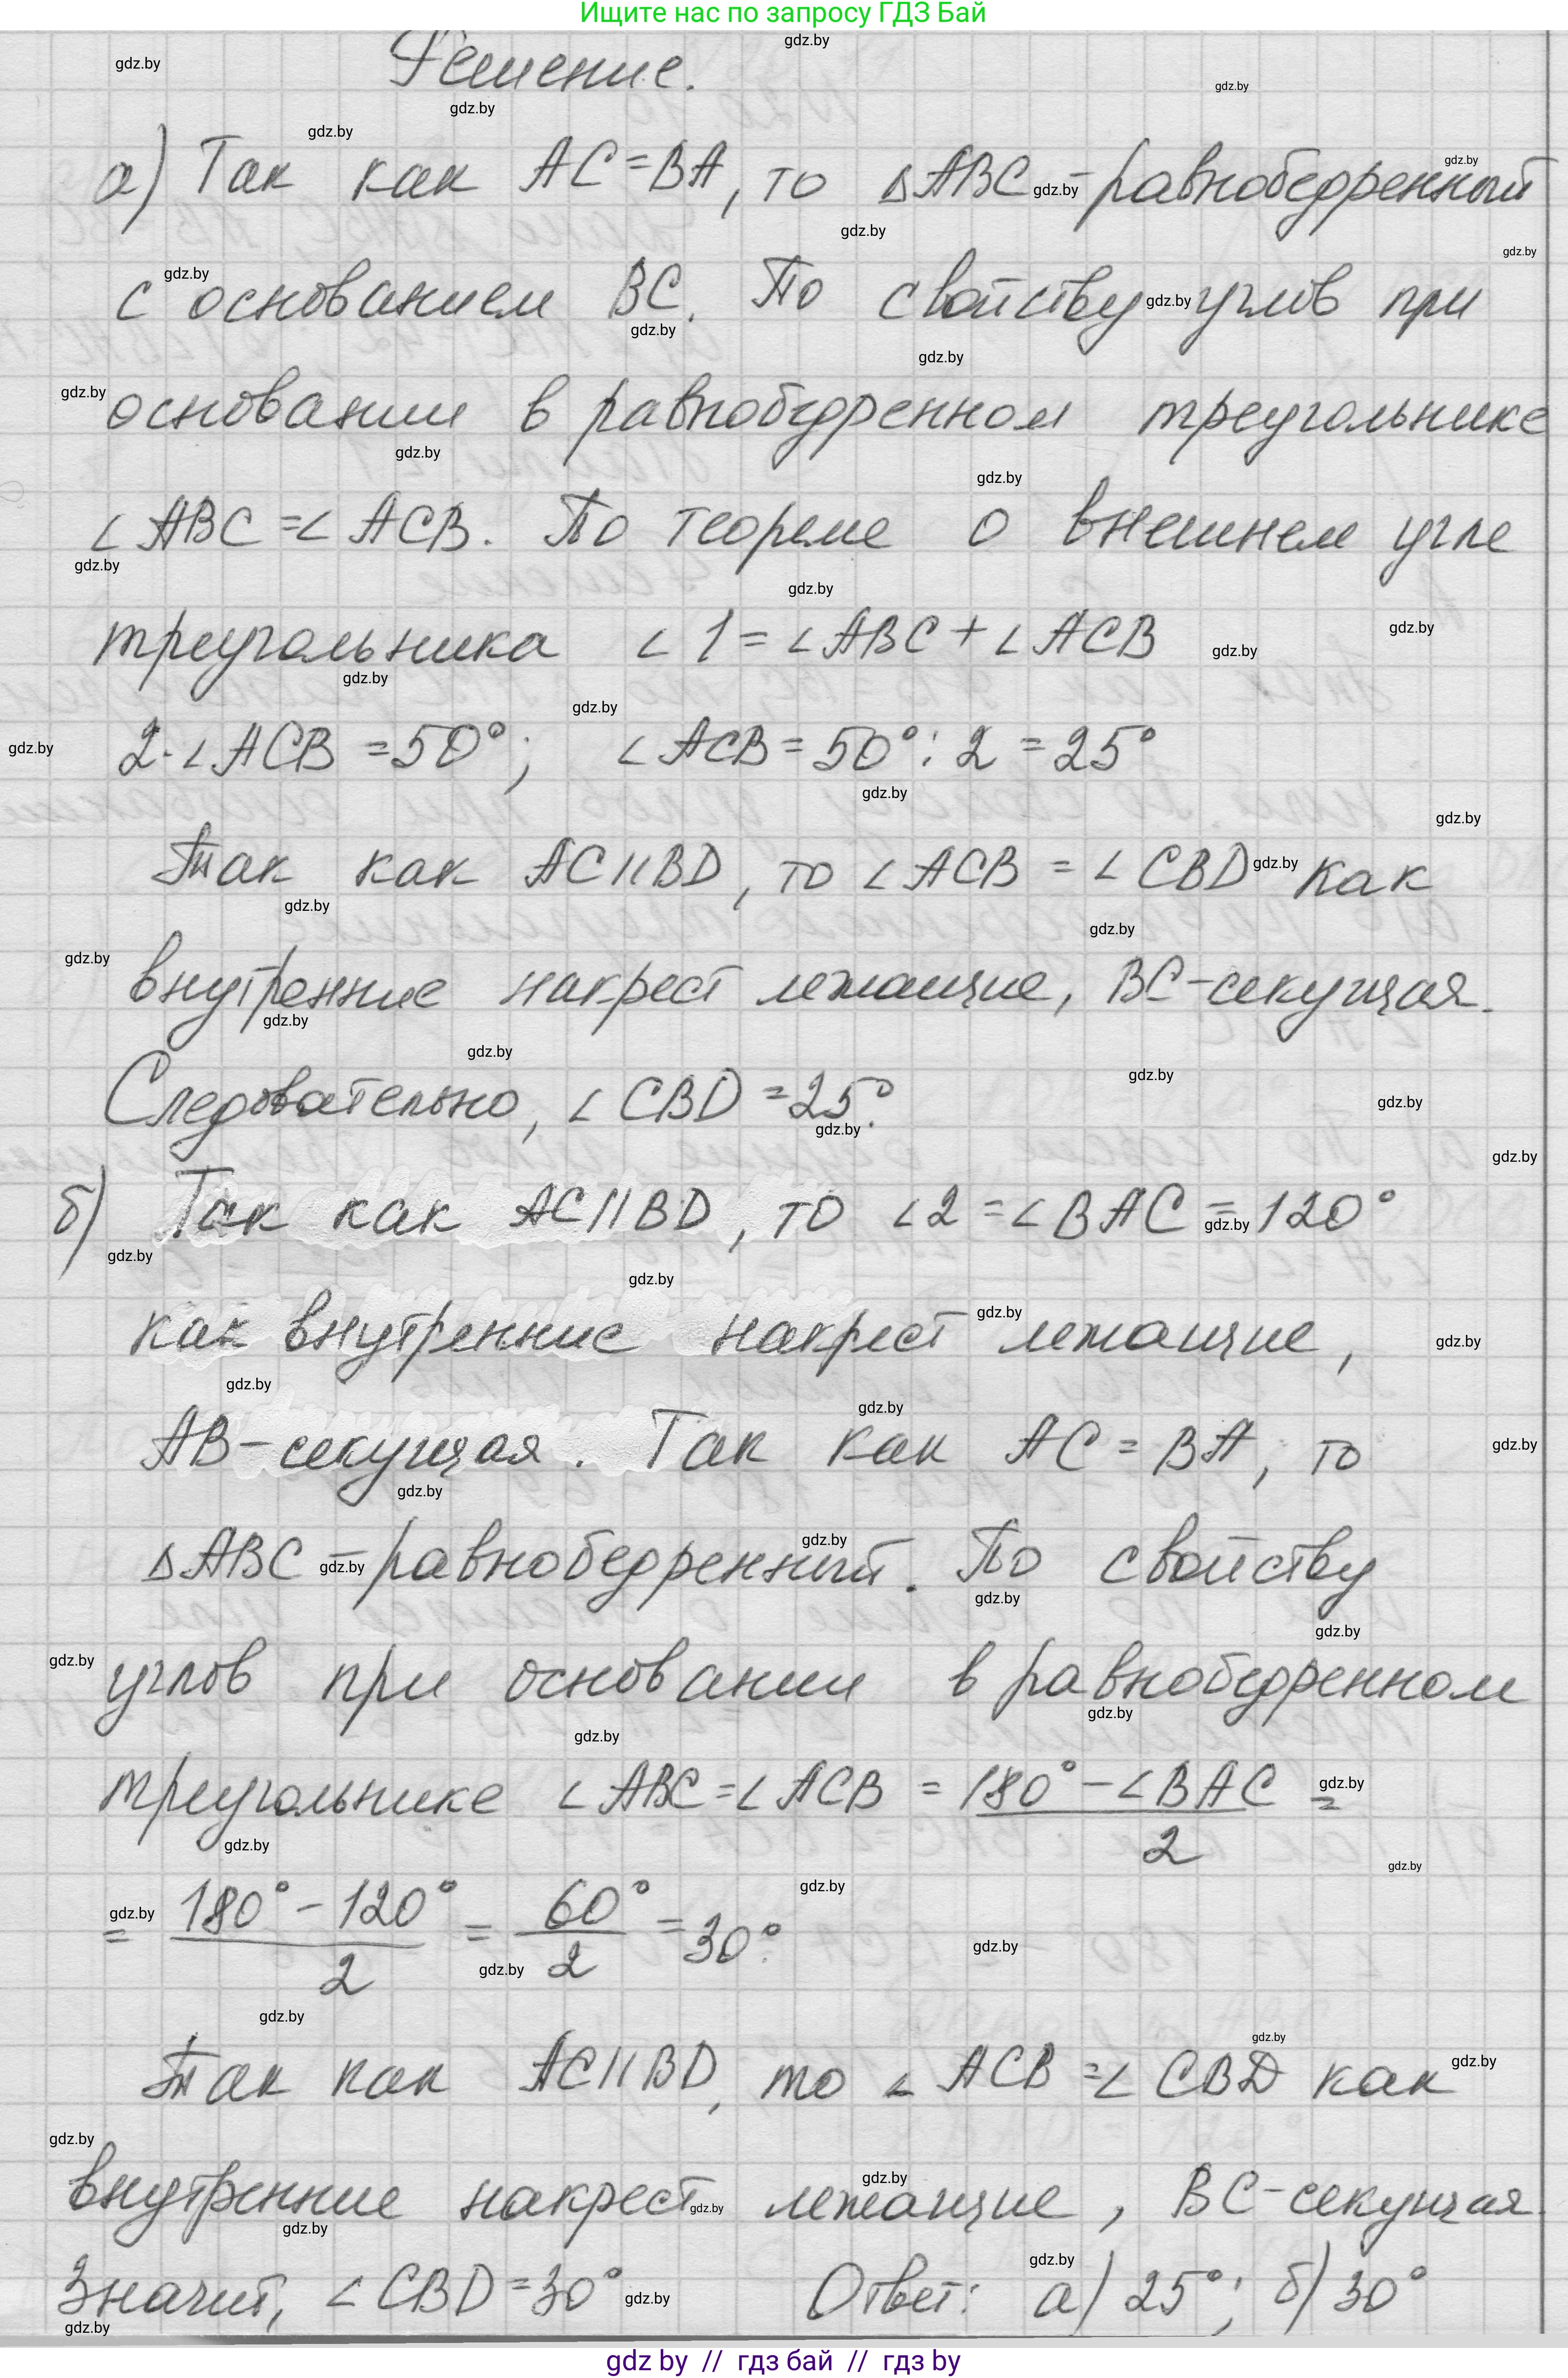 Ищите нас по запросу ГДЗ Бай
Решение.
а) Так как AC=BA, то ΔABC-равнобедренный
с основанием BC. По свойству углов при
основании в равнобедренном треугольнике
∠ABC=∠ACB. По теореме о внешнем угле
треугольника ∠1=∠ABC+∠ACB
2·∠ACB=50°; ∠ACB=50°:2=25°
Так как AC||BD, то ∠ACB=∠CBD как
внутренние накрест лежащие, BC-секущая.
Следовательно, ∠CBD=25°.
б) Так как AC||BD, то ∠2=∠BAC=120°
как внутренние накрест лежащие,
AB-секущая. Так как AC=BA, то
ΔABC-равнобедренный. По свойству
углов при основании в равнобедренном
треугольнике ∠ABC=∠ACB = (180°-∠BAC)/2 =
= (180°-120°)/2 = 60°/2 = 30°.
Так как AC||BD, то ∠ACB=∠CBD как
внутренние накрест лежащие, BC-секущая.
Значит, ∠CBD=30° Ответ: а) 25°; б) 30°
gdz by // гдз бай // гдз by